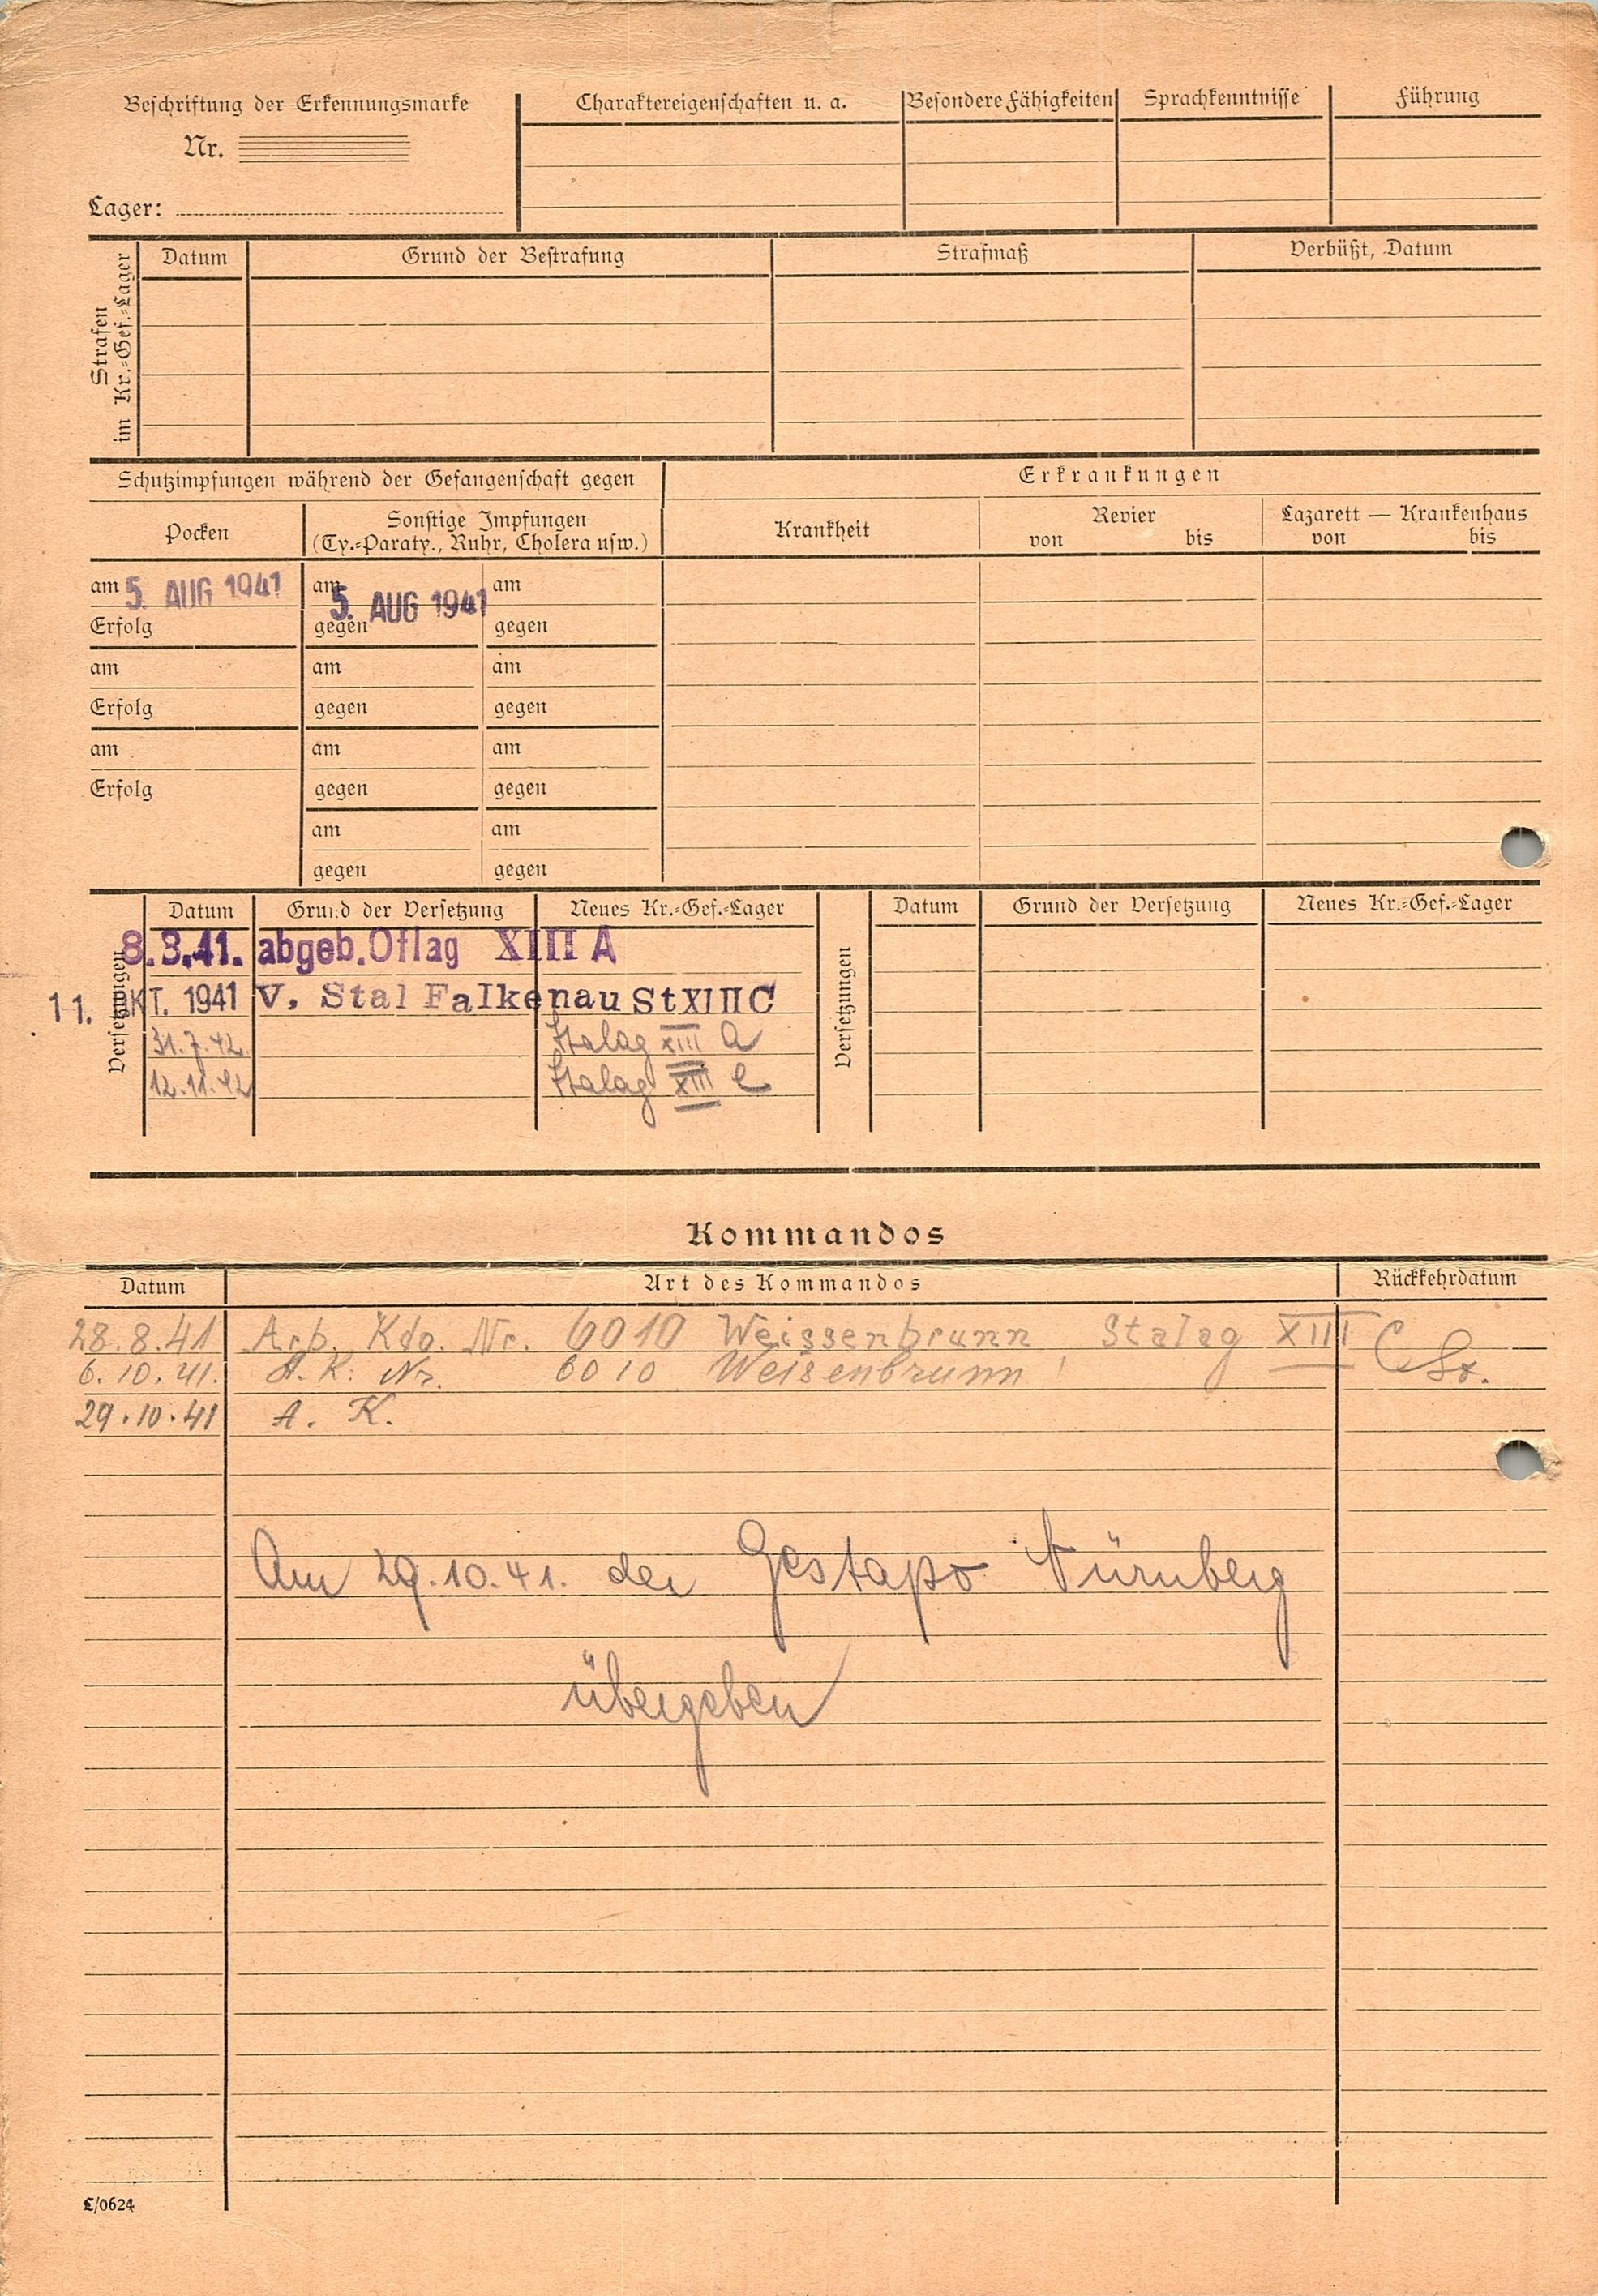 Beschriftung der Erkennungsmarke
Nr.
Lager:
Charaktereigenschaften u. a.
Besondere Fähigkeiten
Sprachkenntnisse
Führung
Strafen
im Kr.-Gef.-Lager
Datum
Grund der Bestrafung
Strafmaß
Verbüßt, Datum
Schutzimpfungen während der Gefangenschaft gegen
Erkrankungen
Pocken
Sonstige Impfungen
(Ty.-Paraty., Ruhr, Cholera usw.)
Krankheit
Revier
von bis
Lazarett — Krankenhaus
von bis
am 5. AUG 1941
am 5. AUG 1941
am
Erfolg
gegen
gegen
am
am
am
Erfolg
gegen
gegen
am
am
am
Erfolg
gegen
gegen
am
am
gegen
gegen
Versetzungen
Datum
Grund der Versetzung
Neues Kr.-Gef.-Lager
Versetzungen
Datum
Grund der Versetzung
Neues Kr.-Gef.-Lager
8.8.41. abgeb. Oflag XIII A
11. OKT. 1941 V. Stal Falkenau St XIII C
31.7.42. Stalag XIII A
12.11.42 Stalag XIII C
Kommandos
Datum
Art des Kommandos
Rückkehrdatum
28.8.41 Arb. Kdo. Nr. 6010 Weissenbrunn Stalag XIII C
6.10.41. A. K. Nr. 6010 Weisenbrunn
29.10.41 A. K.
Am 29.10.41. der Gestapo Nürnberg
übergeben
L/0624